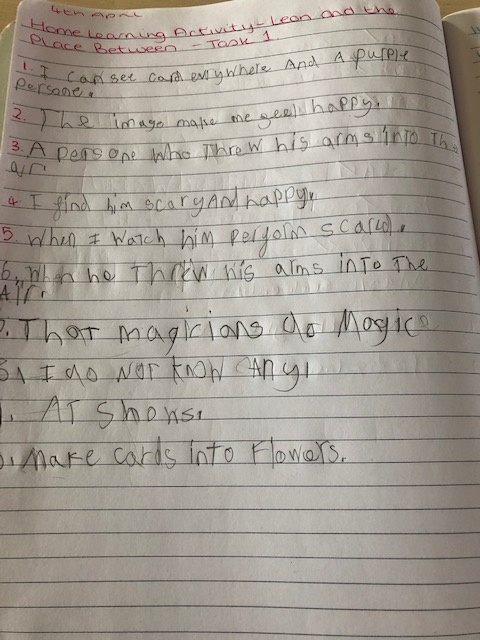 4th April
Home Learning Activity - Leon and the
Place Between - Task 1
1. I can see card everywhere And A purple
persone.
2. The image make me feel happy.
3. A persone who Threw his arms into The
air
4. I find him scary And happy.
5. When I watch him perform scared.
6. When he Threw his arms into The
Air.
7. That magicians do Magic
8. I do NOT know Any.
9. AT shows.
Make cards into Flowers.